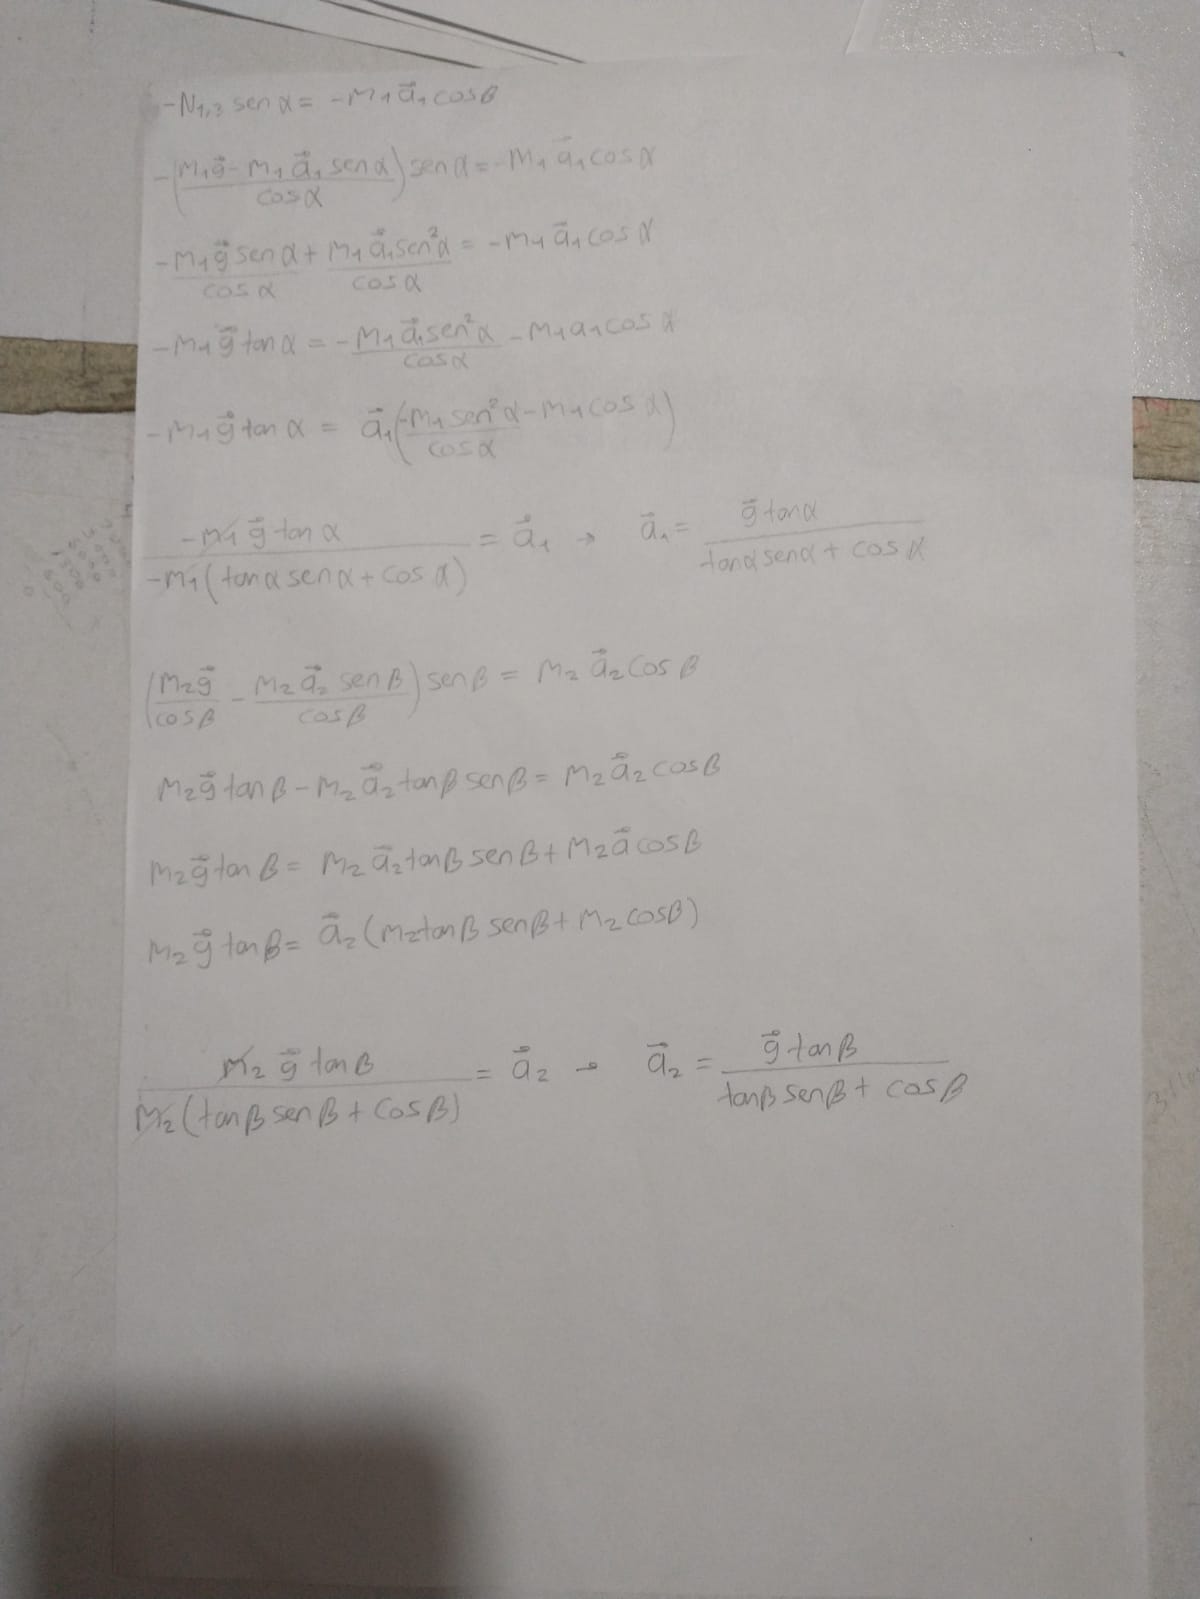 -N₁,₃ sen α = -m₁ a⃗₁ cosβ
-(m₁g⃗ - m₁ a⃗₁ sen α / cos α) sen α = -m₁ a⃗₁ cos α
-m₁ g⃗ sen α / cos α + m₁ a⃗₁ sen² α / cos α = -m₁ a⃗₁ cos α
-m₁ g⃗ tan α = -m₁ a⃗₁ sen² α / cos α - m₁ a₁ cos α
-m₁ g⃗ tan α = a⃗₁ (-m₁ sen² α / cos α - m₁ cos α)
-m₁ g⃗ tan α / -m₁ (tan α sen α + cos α) = a⃗₁ → a⃗₁ = g⃗ tan α / tan α sen α + cos α
(m₂g⃗ / cosβ - m₂ a⃗₂ senβ / cosβ) senβ = m₂ a⃗₂ cosβ
m₂g⃗ tanβ - m₂ a⃗₂ tanβ senβ = m₂ a⃗₂ cosβ
m₂g⃗ tanβ = m₂ a⃗₂ tanβ senβ + m₂ a⃗ cosβ
m₂g⃗ tanβ = a⃗₂ (m₂ tanβ senβ + m₂ cosβ)
m₂ g⃗ tanβ / m₂ (tanβ senβ + cosβ) = a⃗₂ → a⃗₂ = g⃗ tanβ / tanβ senβ + cosβ